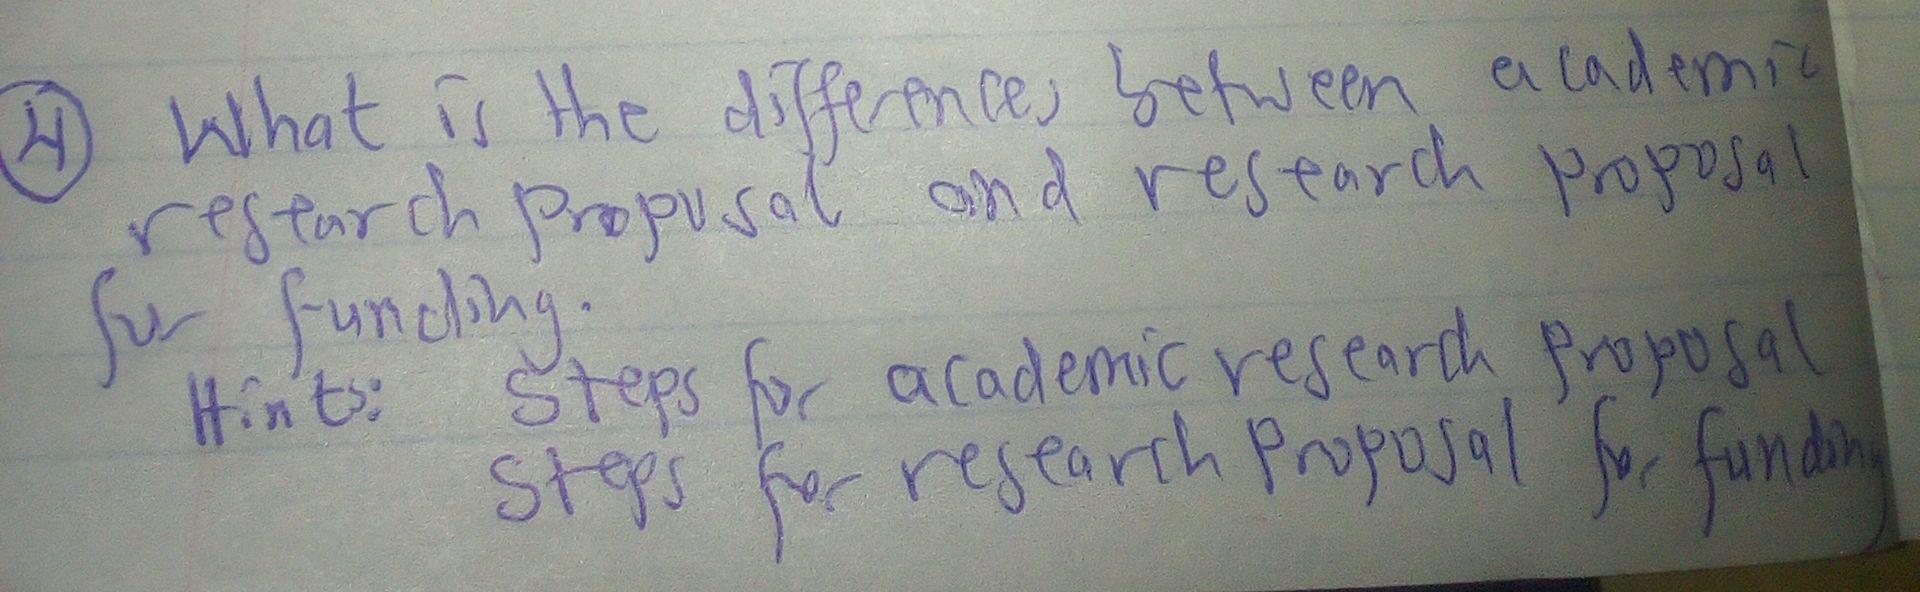 4 What is the differences between academic
research proposal and research proposal
for funding.
Hints: Steps for academic research proposal
Steps for research proposal for funding